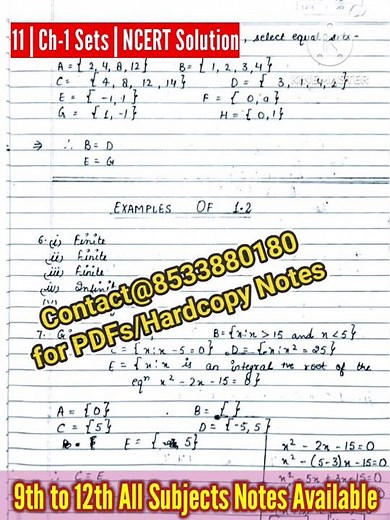 11 | Ch-1 Sets | NCERT Solution
, select equal sets -
KINEMASTER
A = { 2, 4, 8, 12 } B = { 1, 2, 3, 4 }
C = { 4, 8, 12, 14 } D = { 3, 1, 4, 2 }
E = { -1, 1 } F = { 0, a }
G = { 1, -1 } H = { 0, 1 }
⇒ ∴ B = D
E = G
EXAMPLES OF 1.2
6. (i) Finite
(ii) Finite
(iii) Finite
(iv) Infinite
Contact@8533880180
for PDFs/Hardcopy Notes
7. B = { x : x > 15 and x < 5 }
C = { x : x - 5 = 0 } , D = { x : x² = 25 }
E = { x : x is an integral +ve root of the
eqⁿ x² - 2x - 15 = 0 }
A = { 0 } B = { }
C = { 5 } D = { -5, 5 }
E = { 5 }
x² - 2x - 15 = 0
x² - (5-3)x - 15 = 0
x² - 5x + 3x - 15 = 0
∴ C = E
9th to 12th All Subjects Notes Available